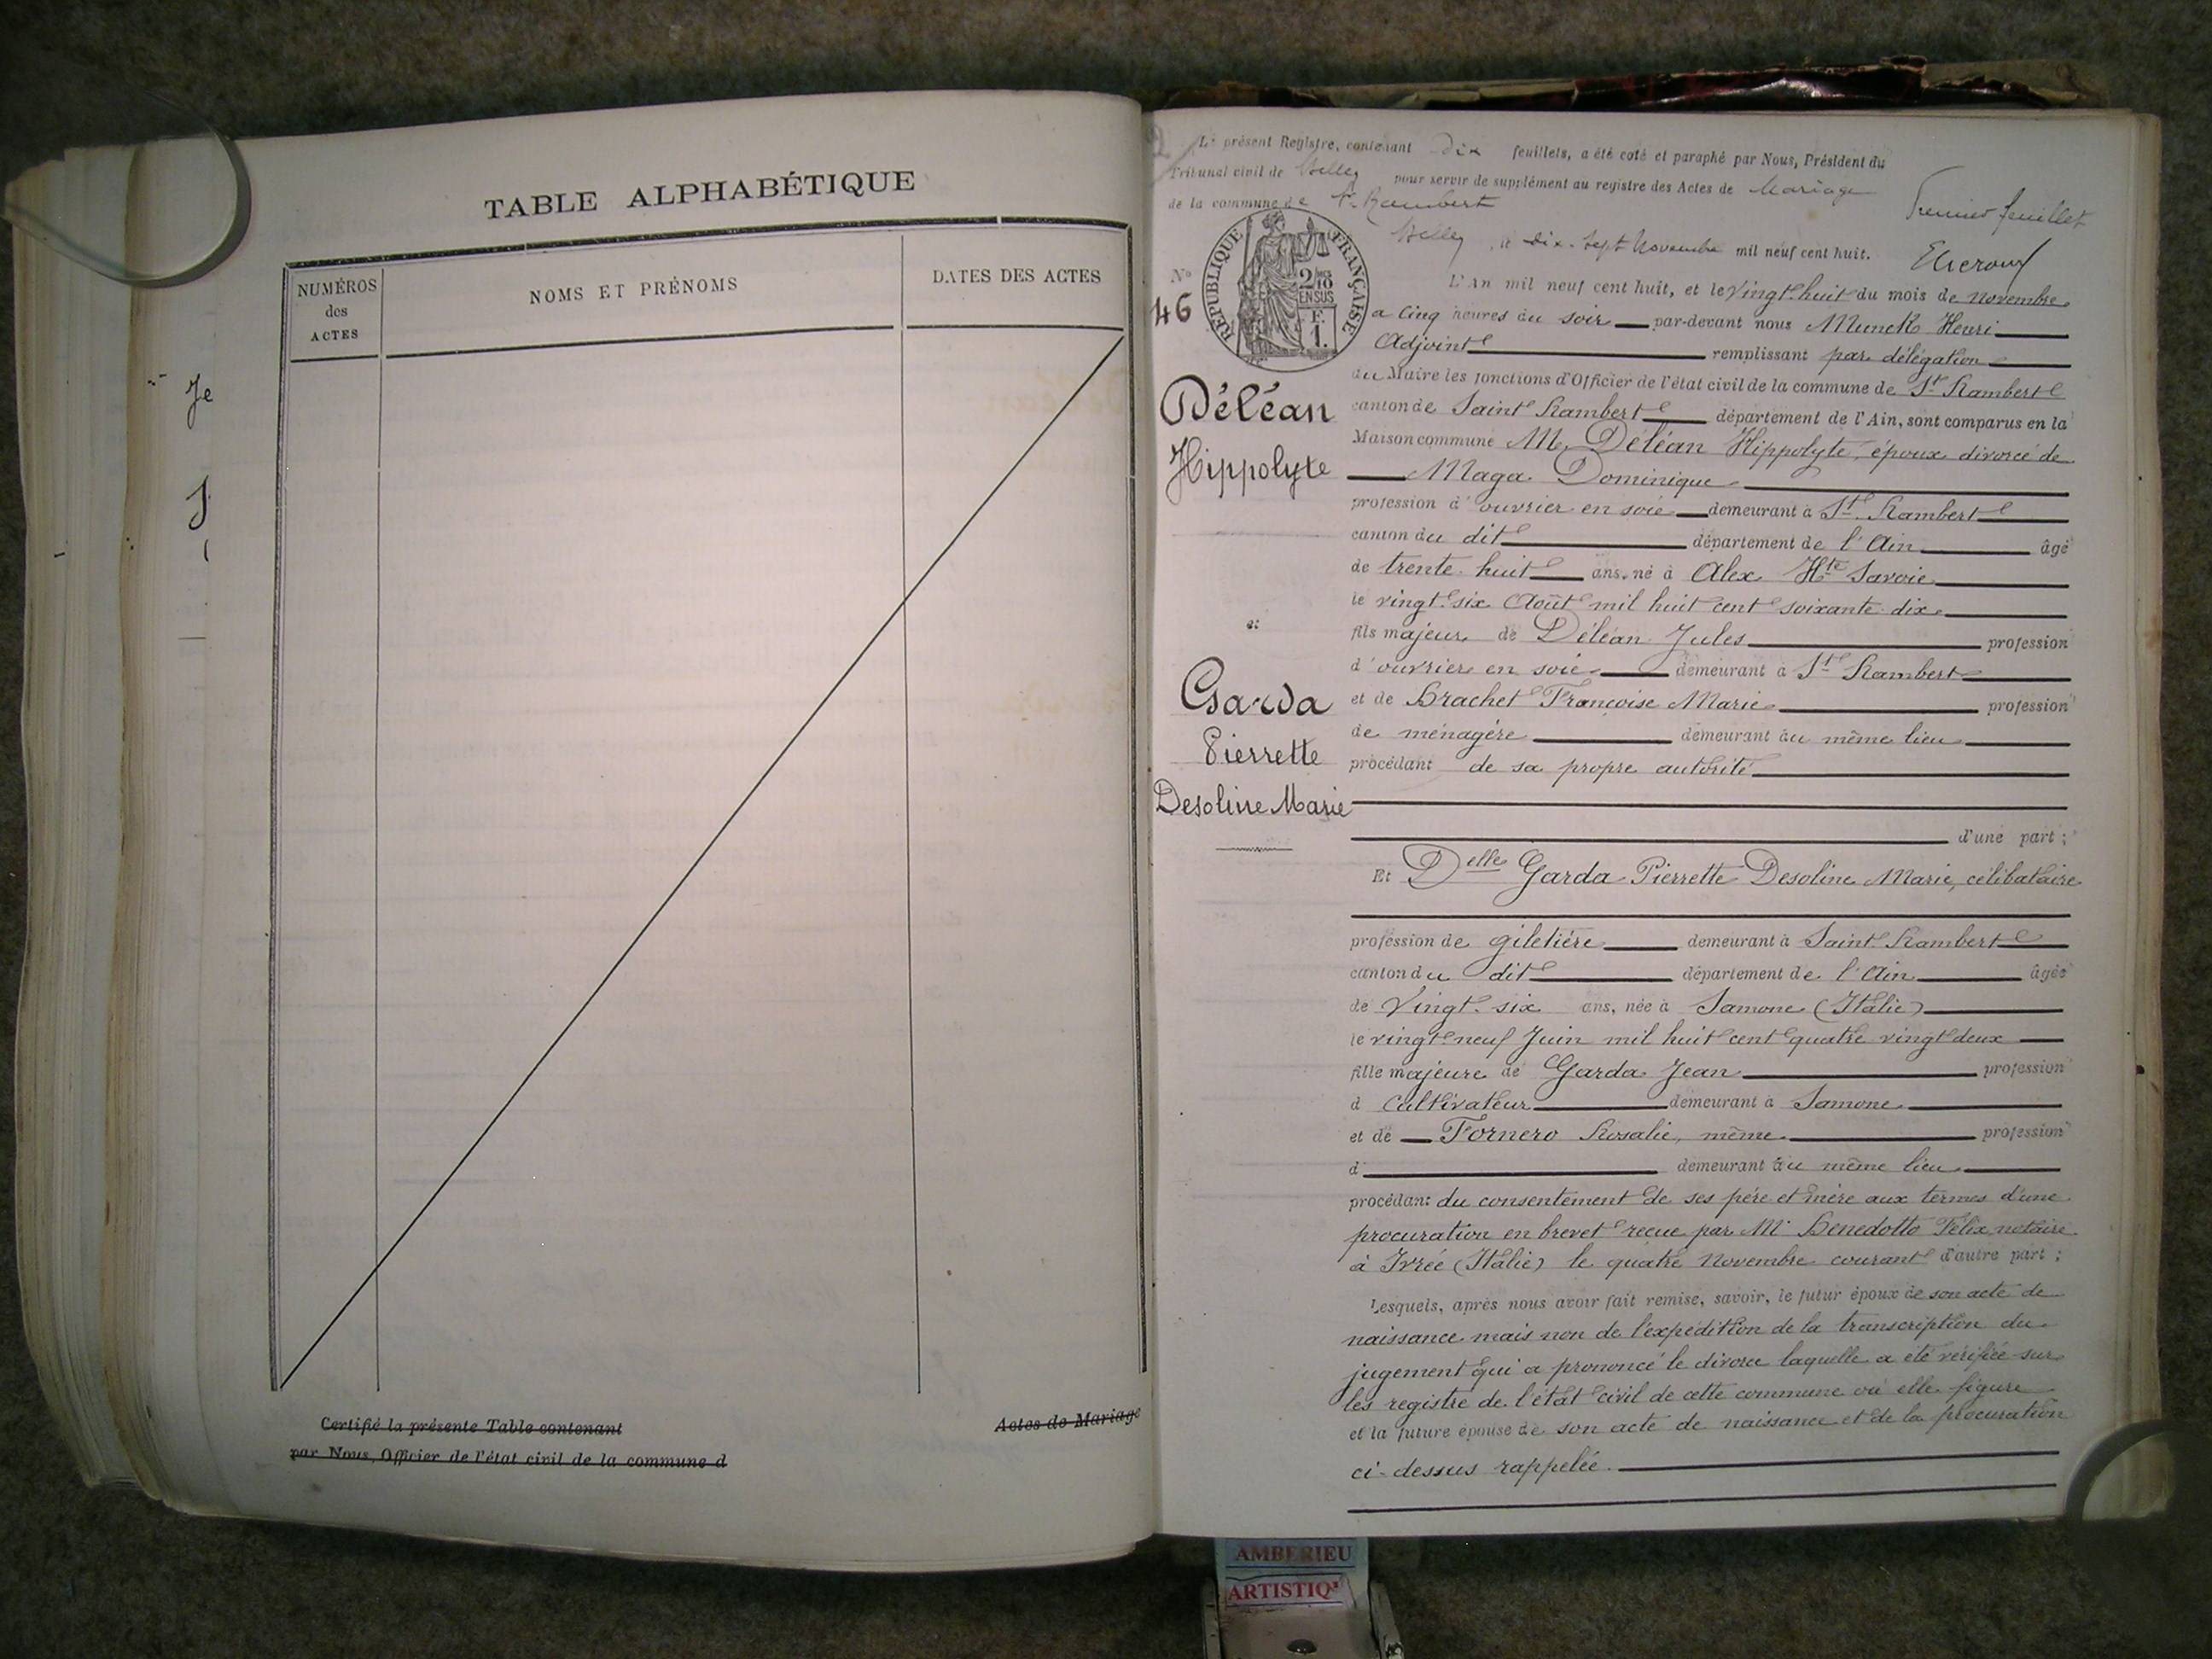 TABLE ALPHABÉTIQUE
NUMÉROS
des
ACTES
NOMS ET PRÉNOMS
DATES DES ACTES
Certifié la présente Table contenant
Actes de Mariage
par Nous, Officier de l'état civil de la commune d
Je
Le présent Registre, contenant dix feuillets, a été coté et paraphé par Nous, Président du
Tribunal civil de Belley pour servir de supplément au registre des Actes de Mariage
de la commune de St Rambert
Premier feuillet
Belley, le dix-sept Novembre mil neuf cent huit.
RÉPUBLIQUE FRANÇAISE
2/10
EN SUS
F.
1.
No
46
Déléan
Hippolyte
et
Garda
Pierrette
Desoline Marie
L'An mil neuf cent huit, et le Vingt-huit du mois de novembre
a Cinq heures du soir par-devant nous Munck Henri
Adjoint remplissant par délégation
du Maire les fonctions d'Officier de l'état civil de la commune de St Rambert
canton de Saint Rambert département de l'Ain, sont comparus en la
Maison commune M. Déléan Hippolyte, époux divorcé de
Maga Dominique
profession d'ouvrier en soie demeurant à St Rambert
canton du dit département de l'Ain âgé
de trente huit ans, né à Alex Hte Savoie
le vingt-six Août mil huit cent soixante-dix
fils majeur de Déléan Jules profession
d'ouvrier en soie demeurant à St Rambert
et de Brachet Françoise Marie profession
de ménagère demeurant au même lieu
procédant de sa propre autorité
d'une part ;
Et Delle Garda Pierrette Desoline Marie, célibataire
profession de giletière demeurant à Saint Rambert
canton du dit département de l'Ain âgée
de Vingt-six ans, née à Samone (Italie)
le vingt-neuf Juin mil huit cent quatre vingt deux
fille majeure de Garda Jean profession
d cultivateur demeurant à Samone
et de Fornero Rosalie, même profession
d demeurant au même lieu
procédant du consentement de ses père et mère aux termes d'une
procuration en brevet reçue par Me Benedotto Félix notaire
à Ivrée (Italie) le quatre Novembre courant d'autre part ;
Lesquels, après nous avoir fait remise, savoir, le futur époux de son acte de
naissance mais non de l'expédition de la transcription du
jugement qui a prononcé le divorce laquelle a été vérifiée sur
les registre de l'état civil de cette commune où elle figure
et la future épouse de son acte de naissance et de la procuration
ci-dessus rappelée.
AMBERIEU
ARTISTIQ